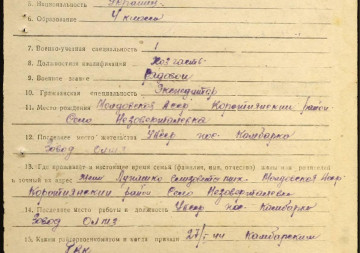 5. Национальность Украинец
6. Образование 4 класса
7. Военно-учетная специальность 1
8. Должностная квалификация Хоз часть
9. Военное звание Рядовой
10. Гражданская специальность Экспедитор
11. Место рождения Молдовской АССР, Коротнянский район
Село Незовертайловка
12. Последнее место жительства Увсср пос- Камбарка
Завод
13. Где проживает в настоящее время семья (фамилия, имя, отчество)
и точный ее адрес жена Молдовская АССР
Коротнянский район Село Незовертаевка
14. Последнее место работы и должность Увсср пос- Камбарка
Завод
15. Каким райвоенкоматом и когда призван Камбарским
РВК